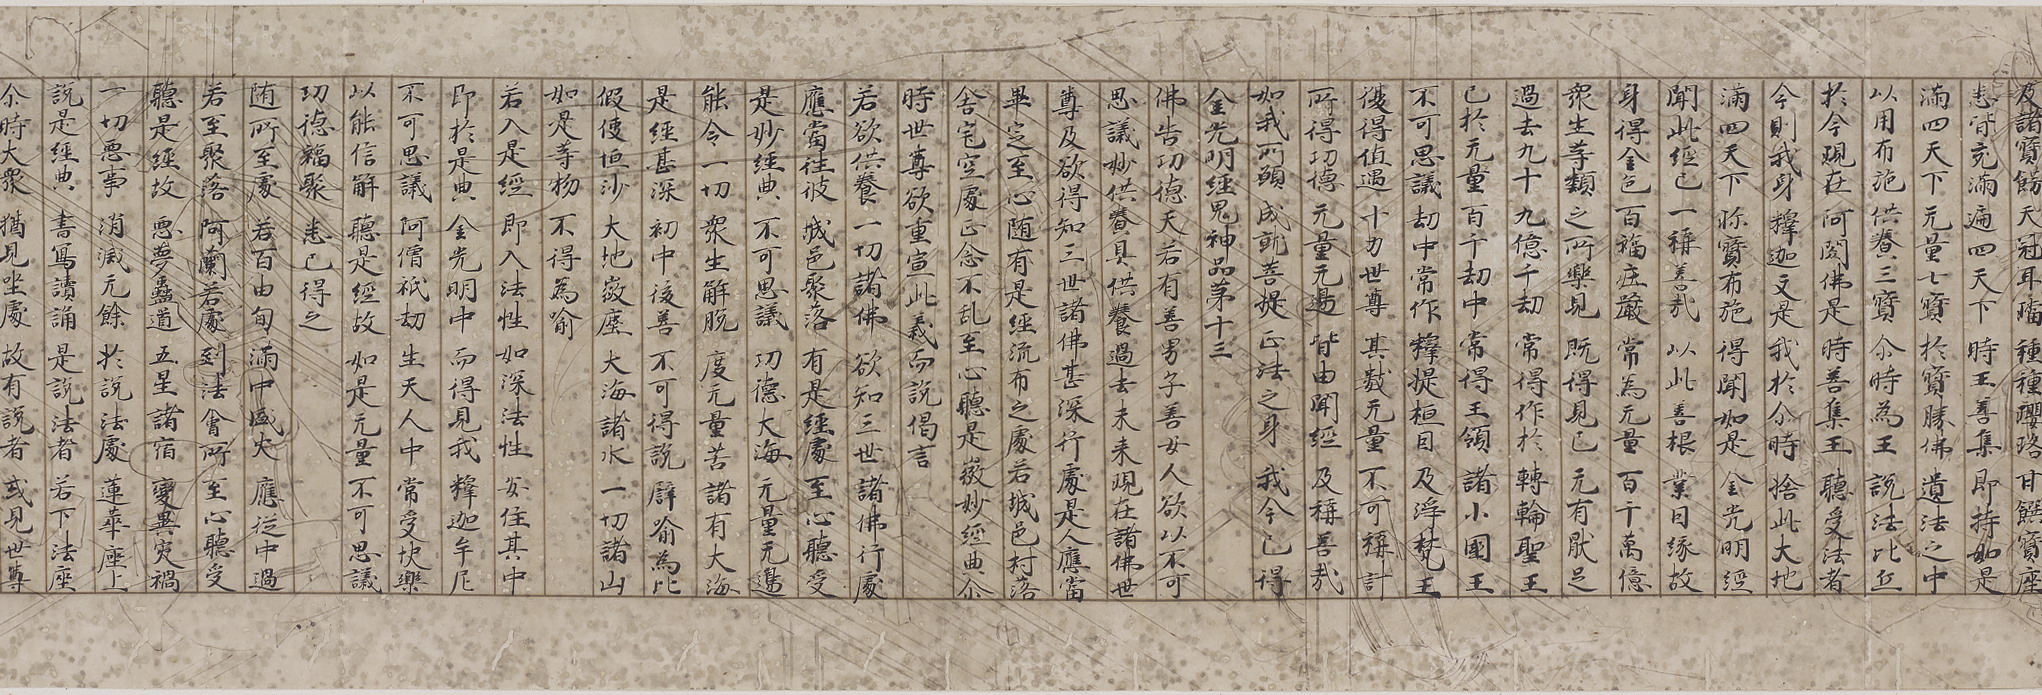 及諸寶飾 天冠耳璫 種種瓔珞 甘饌寶座
悉皆充滿 遍四天下 時王善集 即持如是
滿四天下 无量七寶 於寶勝佛 遺法之中
以用布施 供養三寶 尒時為王 說法比丘
於今現在 阿閦佛是 時善集王 聽受法者
今則我身 釋迦文是 我於尒時 捨此大地
滿四天下 珎寶布施 得聞如是 金光明經
聞此經已 一稱善哉 以此善根 業因緣故
身得金色 百福庄嚴 常為无量 百千萬億
衆生等類 之所樂見 既得見已 无有猒足
過去九十 九億千劫 常得作於 轉輪聖王
已於无量 百千劫中 常得王領 諸小國王
不可思議 劫中常作 釋提桓因 及淨梵王
復得值遇 十力世尊 其數无量 不可稱計
所得功德 无量无邊 皆由聞經 及稱善哉
如我所願 成就菩提 正法之身 我今已得
金光明經鬼神品第十三
佛告功德天若有善男子善女人欲以不可
思議妙供養具供養過去未来現在諸佛世
尊及欲得知三世諸佛甚深行處是人應當
畢定至心随有是經流布之處若城邑村落
舍宅空處正念不乱至心聽是微妙經典尒
時世尊欲重宣此義而說偈言
若欲供養 一切諸佛 欲知三世 諸佛行處
應當往彼 城邑聚落 有是經處 至心聽受
是妙經典 不可思議 功德大海 无量无邊
能令一切 衆生解脫 度无量苦 諸有大海
是經甚深 初中後善 不可得說 譬喻為比
假使恒沙 大地微塵 大海諸水 一切諸山
如是等物 不得為喻
若入是經 即入法性 如深法性 安住其中
即於是典 金光明中 而得見我 釋迦牟尼
不可思議 阿僧祇劫 生天人中 常受快樂
以能信解 聽是經故 如是无量 不可思議
功德福聚 悉已得之
随所至處 若百由旬 滿中盛火 應從中過
若至聚落 阿蘭若處 到法會所 至心聽受
聽是經故 惡夢蠱道 五星諸宿 變異灾禍
一切惡事 消滅无餘 於說法處 蓮華座上
說是經典 書寫讀誦 是說法者 若下法座
尒時大衆 猶見坐處 故有說者 或見世尊